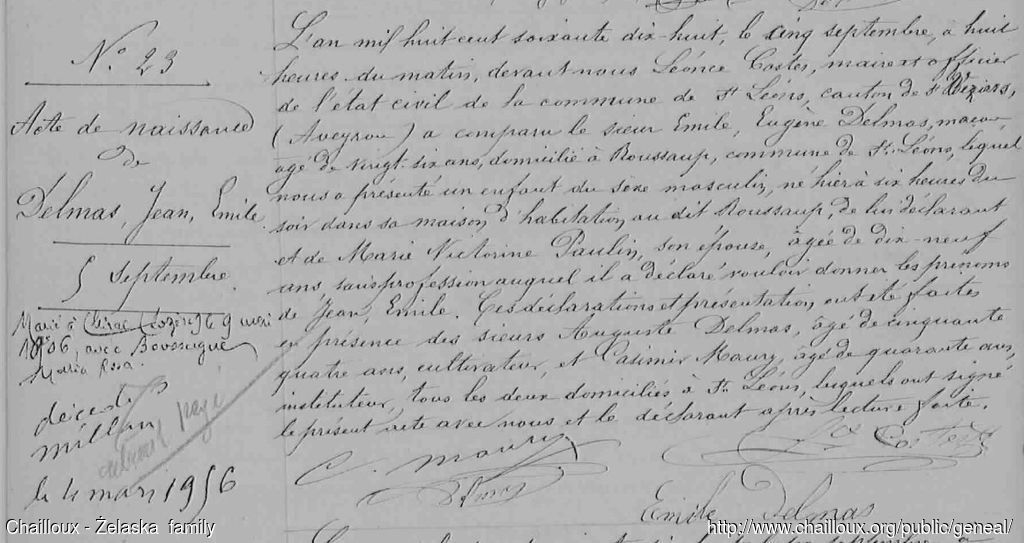 N° 23
Acte de naissance
de
Delmas, Jean, Emile.
5 Septembre.
Marié à (Lozère) le 9 mai
1906, avec
Maria Rosa.
décédé à
millau
le 4 mars 1956
L'an mil huit cent soixante dix-huit, le cinq septembre, à huit
heures du matin, devant nous Léonce Costes, maire et officier
de l'état civil de la commune de St Léons, canton de St Beziers,
(Aveyron) a comparu le sieur Emile, Eugène Delmas, maçon,
agé de vingt-six ans, domicilié à Roussaup, commune de St. Léons, lequel
nous a présenté un enfant du sexe masculin, né hier à six heures du
soir dans sa maison d'habitation au dit Roussaup, de lui déclarant
et de Marie Victorine Paulin, son épouse, âgée de dix-neuf
ans, sans profession auquel il a déclaré vouloir donner les prénoms
de Jean, Emile. Ces déclarations et présentation ont été faites
en présence des sieurs Auguste Delmas, âgé de cinquante
quatre ans, cultivateur, et Casimir Maury, âgé de quarante ans,
instituteur, tous les deux domiciliés à St. Léons, lesquels ont signé
le présent acte avec nous et le déclarant après lecture faite.
C. Maury
Costes
Emile Delmas
Chailloux - Żelaska family
http://www.chailloux.org/public/geneal/